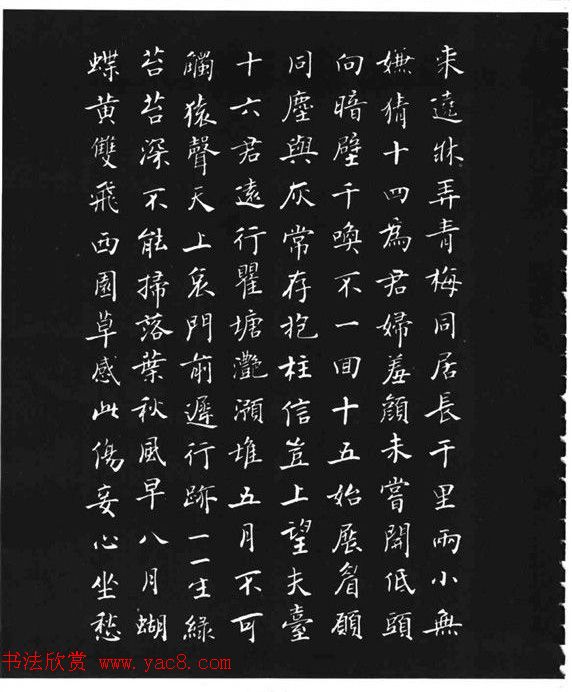 来遶牀弄青梅同居長干里兩小無
嫌猜十四為君婦羞顏未嘗開低頭
向暗壁千喚不一回十五始展眉願
同塵與灰常存抱柱信豈上望夫臺
十六君遠行瞿塘灩澦堆五月不可
觸猿聲天上哀門前遲行跡一一生綠
苔苔深不能掃落葉秋風早八月蝴
蝶黄雙飛西園草感此傷妾心坐愁
书法欣赏 www.yac8.com